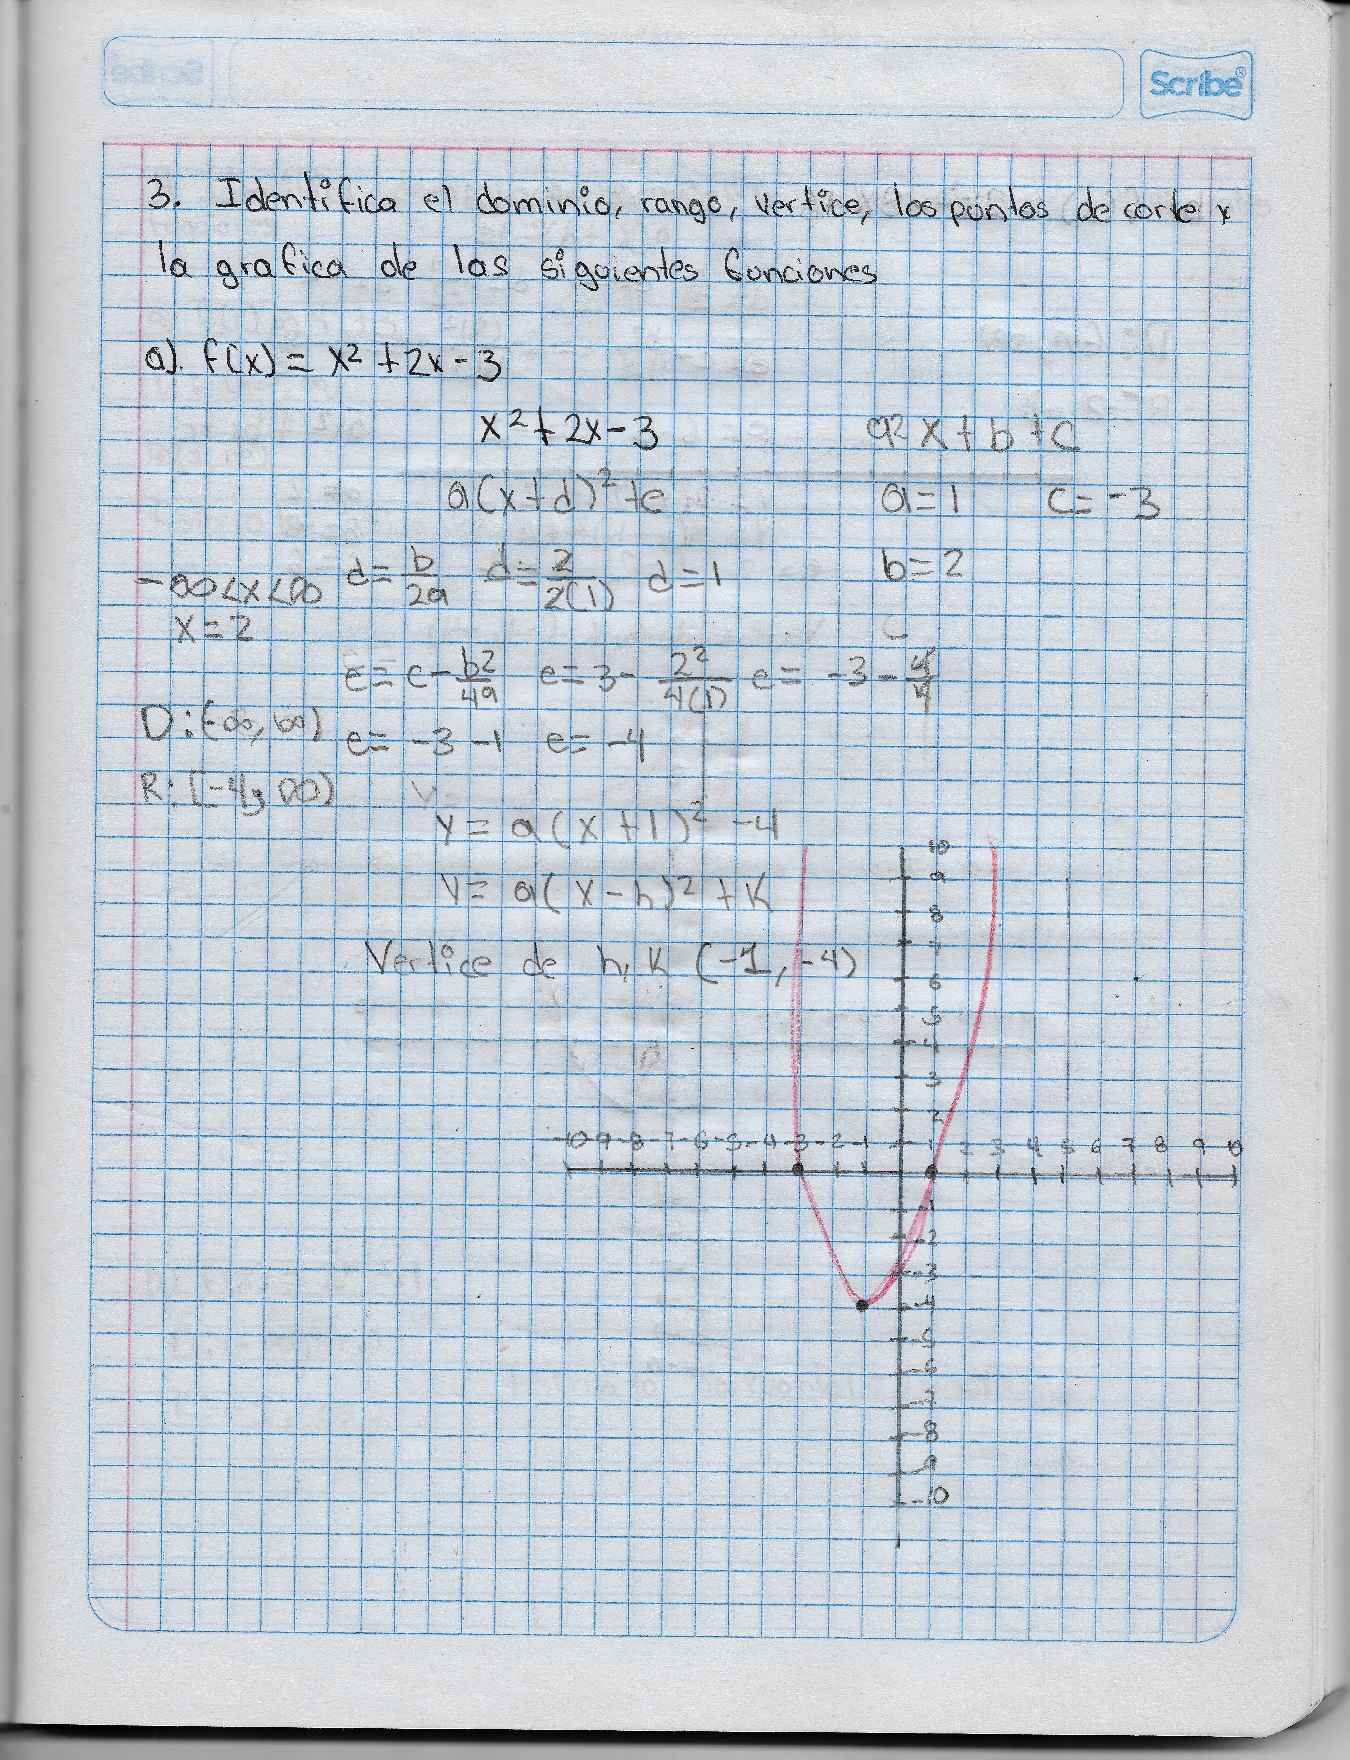 Scribe®
3. Identifica el dominio, rango, vertice, los puntos de corte y
la grafica de las siguientes funciones
a). f(x) = x² + 2x - 3
x² + 2x - 3 a²x + b + c
a(x+d)² + e a = 1 c = -3
-∞<x<∞ d = b/2a d = 2/2(1) d = 1 b = 2
x = 2
E = c - b2/4a e = 3 - 2²/4(1) e = -3 - 4/4
D: (-∞, ∞) e = -3 - 1 e = -4
R: [-4, ∞)
y = a(x + 1)² - 4
y = a(x - h)² + k
Vertice de h, k (-1, -4)
10
9
8
7
6
5
4
3
2
-10 -9 -8 -7 -6 -5 -4 -3 -2 -1 1 2 3 4 5 6 7 8 9 10
-1
-2
-3
-4
-5
-6
-7
-8
-9
-10